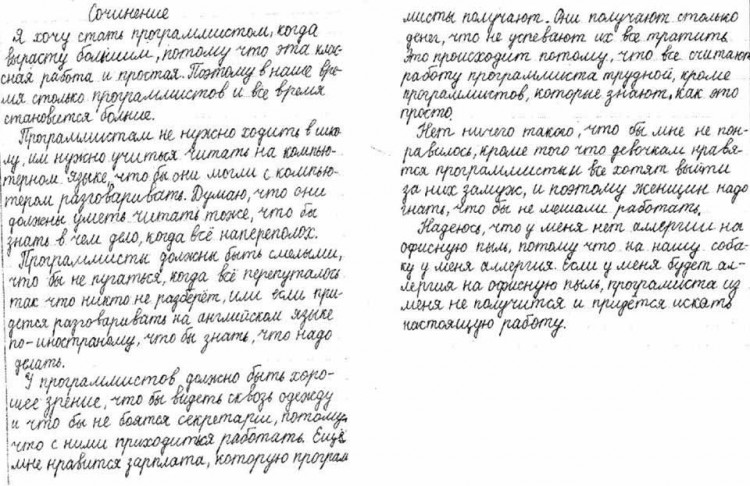 Сочинение
Я хочу стать программистом, когда
вырасту большим, потому что эта клас-
сная работа и простая. Поэтому в наше вре-
мя столько программистов и все время
становится болние.
Программистам не нужно ходить в шко-
лу, им нужно учиться читать на компью-
терном языке, что бы они могли с компью-
тером разговаривать. Думаю, что они
должны уметь читать тоже, что бы
знать в чем дело, когда всё наперепо лох.
Программисты должны быть смелыми,
что бы не пугаться, когда всё перепуталось
так что никто не разберёт, или если при-
дется разговаривать на английском языке
по-иностраному, что бы знать, что надо
делать.
У программистов должно быть хоро-
шее зрение, что бы видеть сквозь одежду
и что бы не боятся секретарш, потому,
что с ними приходиться работать. Ещё
мне нравится зарплата, которую програм
мисты получают. Они получают столько
денег, что не успевают их все тратить.
Это происходит потому, что все считают
работу программиста трудной, кроме
программистов, которые знают, как это
просто.
Нет ничего такого, что бы мне не пон-
равилось, кроме того что девочкам нравя-
тся программисты и все хотят выйти
за них замуж, и поэтому женщин надо
гнать, что бы не мешали работать.
Надеюсь, что у меня нет аллергии на
офисную пыль, потому что на нашу соба-
ку у меня аллергия. Если у меня будет ал-
лергия на офисную пыль, програмиста из
меня не получится и придётся искать
настоящую работу.